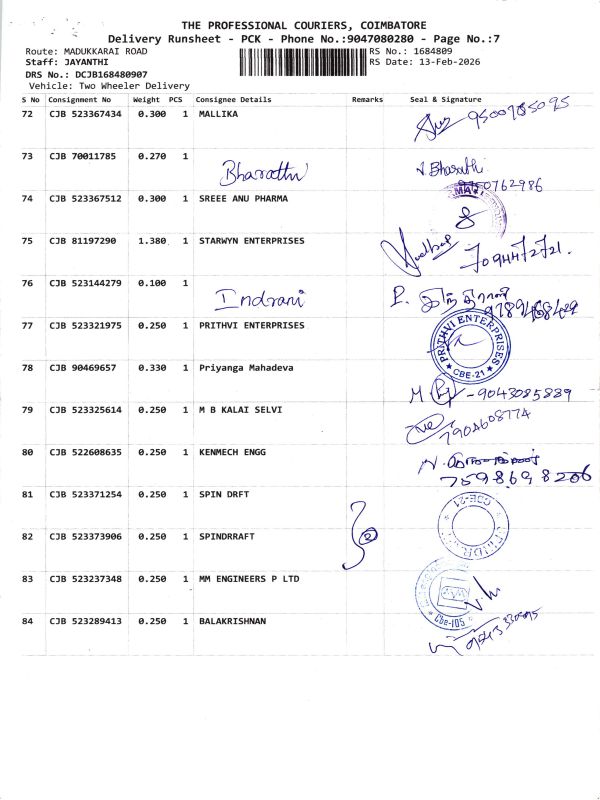 THE PROFESSIONAL COURIERS, COIMBATORE
Delivery Runsheet - PCK - Phone No.:9047080280 - Page No.:7
Route: MADUKKARAI ROAD
RS No.: 1684809
Staff: JAYANTHI
RS Date: 13-Feb-2026
DRS No.: DCJB168480907
Vehicle: Two Wheeler Delivery
S No Consignment No Weight PCS Consignee Details Remarks Seal & Signature
72 CJB 523367434 0.300 1 MALLIKA
73 CJB 70011785 0.270 1 Bharathi
Bharathi
74 CJB 523367512 0.300 1 SREEE ANU PHARMA
75 CJB 81197290 1.380 1 STARWYN ENTERPRISES
7094472721.
76 CJB 523144279 0.100 1 Indrani
77 CJB 523321975 0.250 1 PRITHVI ENTERPRISES
PRITHVI ENTERPRISES
CBE-21
78 CJB 90469657 0.330 1 Priyanga Mahadeva
M - 9043085889
79 CJB 523325614 0.250 1 M B KALAI SELVI
7904608774
80 CJB 522608635 0.250 1 KENMECH ENGG
7598698206
81 CJB 523371254 0.250 1 SPIN DRFT
CBE-21
82 CJB 523373906 0.250 1 SPINDRRAFT
2
83 CJB 523237348 0.250 1 MM ENGINEERS P LTD
Cbe-105
84 CJB 523289413 0.250 1 BALAKRISHNAN